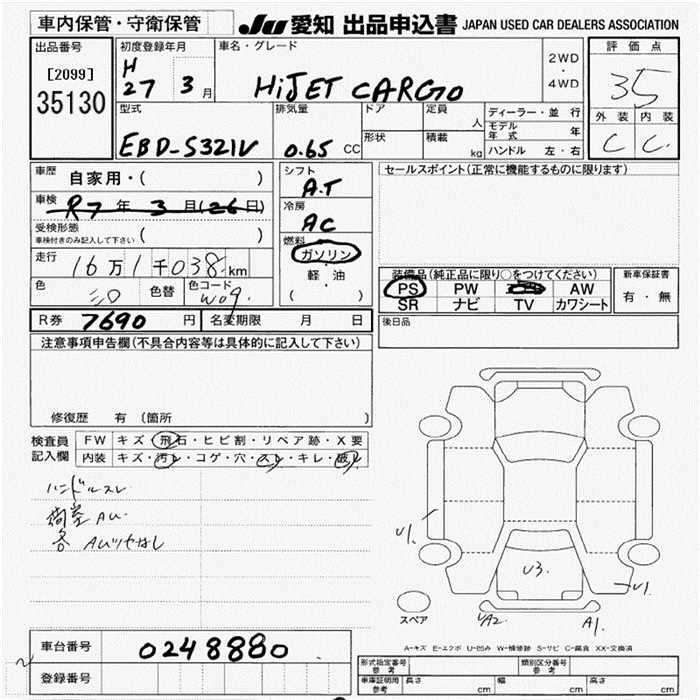 車内保管・守衛保管 JU 愛知 出品申込書 JAPAN USED CAR DEALERS ASSOCIATION
出品番号 初度登録年月 車名・グレード 2WD・4WD 評価点
[2099] H 27 3月 HiJET CARGO 35
35130
型式 排気量 ドア 定員 人 ディーラー・並行 外装 内装
EBD-S321V 0.65 CC 形状 積載 kg モデル年式 年 C C
ハンドル 左・右
車歴 自家用・( ) シフト A.T セールスポイント(正常に機能するものに限ります)
車検 R7年 3月(26日) 冷房 AC
受検形態 車検付きのみ記入して下さい ( ) 燃料 ガソリン
走行 16万1千038km 軽・油 装備品(純正品に限り○をつけてください) 新車保証書
( ) PS PW AW 有・無
色 シロ 色替 色コード W09 SR ナビ TV カワシート
R券 7690円 名変期限 月 日 後日品
注意事項申告欄(不具合内容等は具体的に記入して下さい)
修復歴 有 (箇所 )
検査員記入欄 FW キズ・飛石・ヒビ割・リペア跡・X要
内装 キズ・汚レ・コゲ・穴・スレ・キレ・破レ
ハンドルスレ
荷室 AU.
各 AUツヤなし
U1 U3. U1
スペア UA2 A1.
A-キズ E-エクボ U-凹み W-補修跡 S-サビ C-腐食 XX-交換済
車台番号 0248880
登録番号
形式指定番号 参考 類別区分番号 参考
車庫証明用 参考 長さ cm 幅 cm 高さ cm